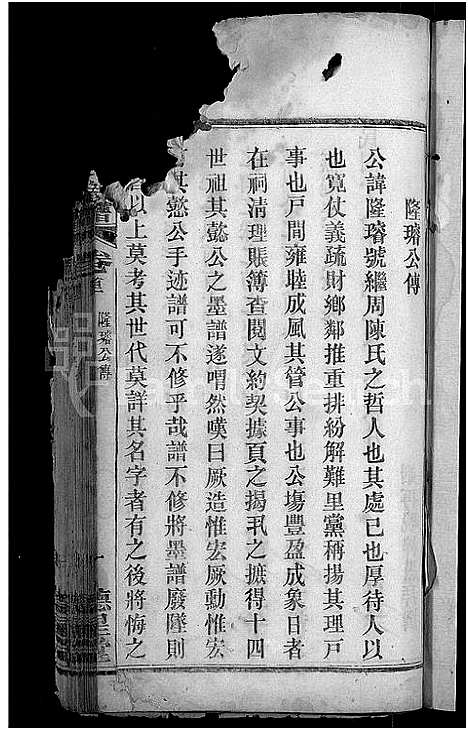 隆璿公傳
公諱隆璿號繼周陳氏之哲人也其處已也厚待人以
也寬仗義疏財鄉鄰推重排紛解難里黨稱揚其理戶
事也戶間雍睦成風其管公事也公塲豐盈成象日者
在祠清理賬簿查閱文約契據頁之揭丮之摭得十四
世祖其懿公之墨譜遂喟然嘆曰厥造惟宏厥勳惟宏
其懿公手迹譜可不修乎哉譜不修將墨譜廢墜則
以上莫考其世代莫詳其名字者有之後將悔之
譜 卷首 隆璿公傳 一 德星堂